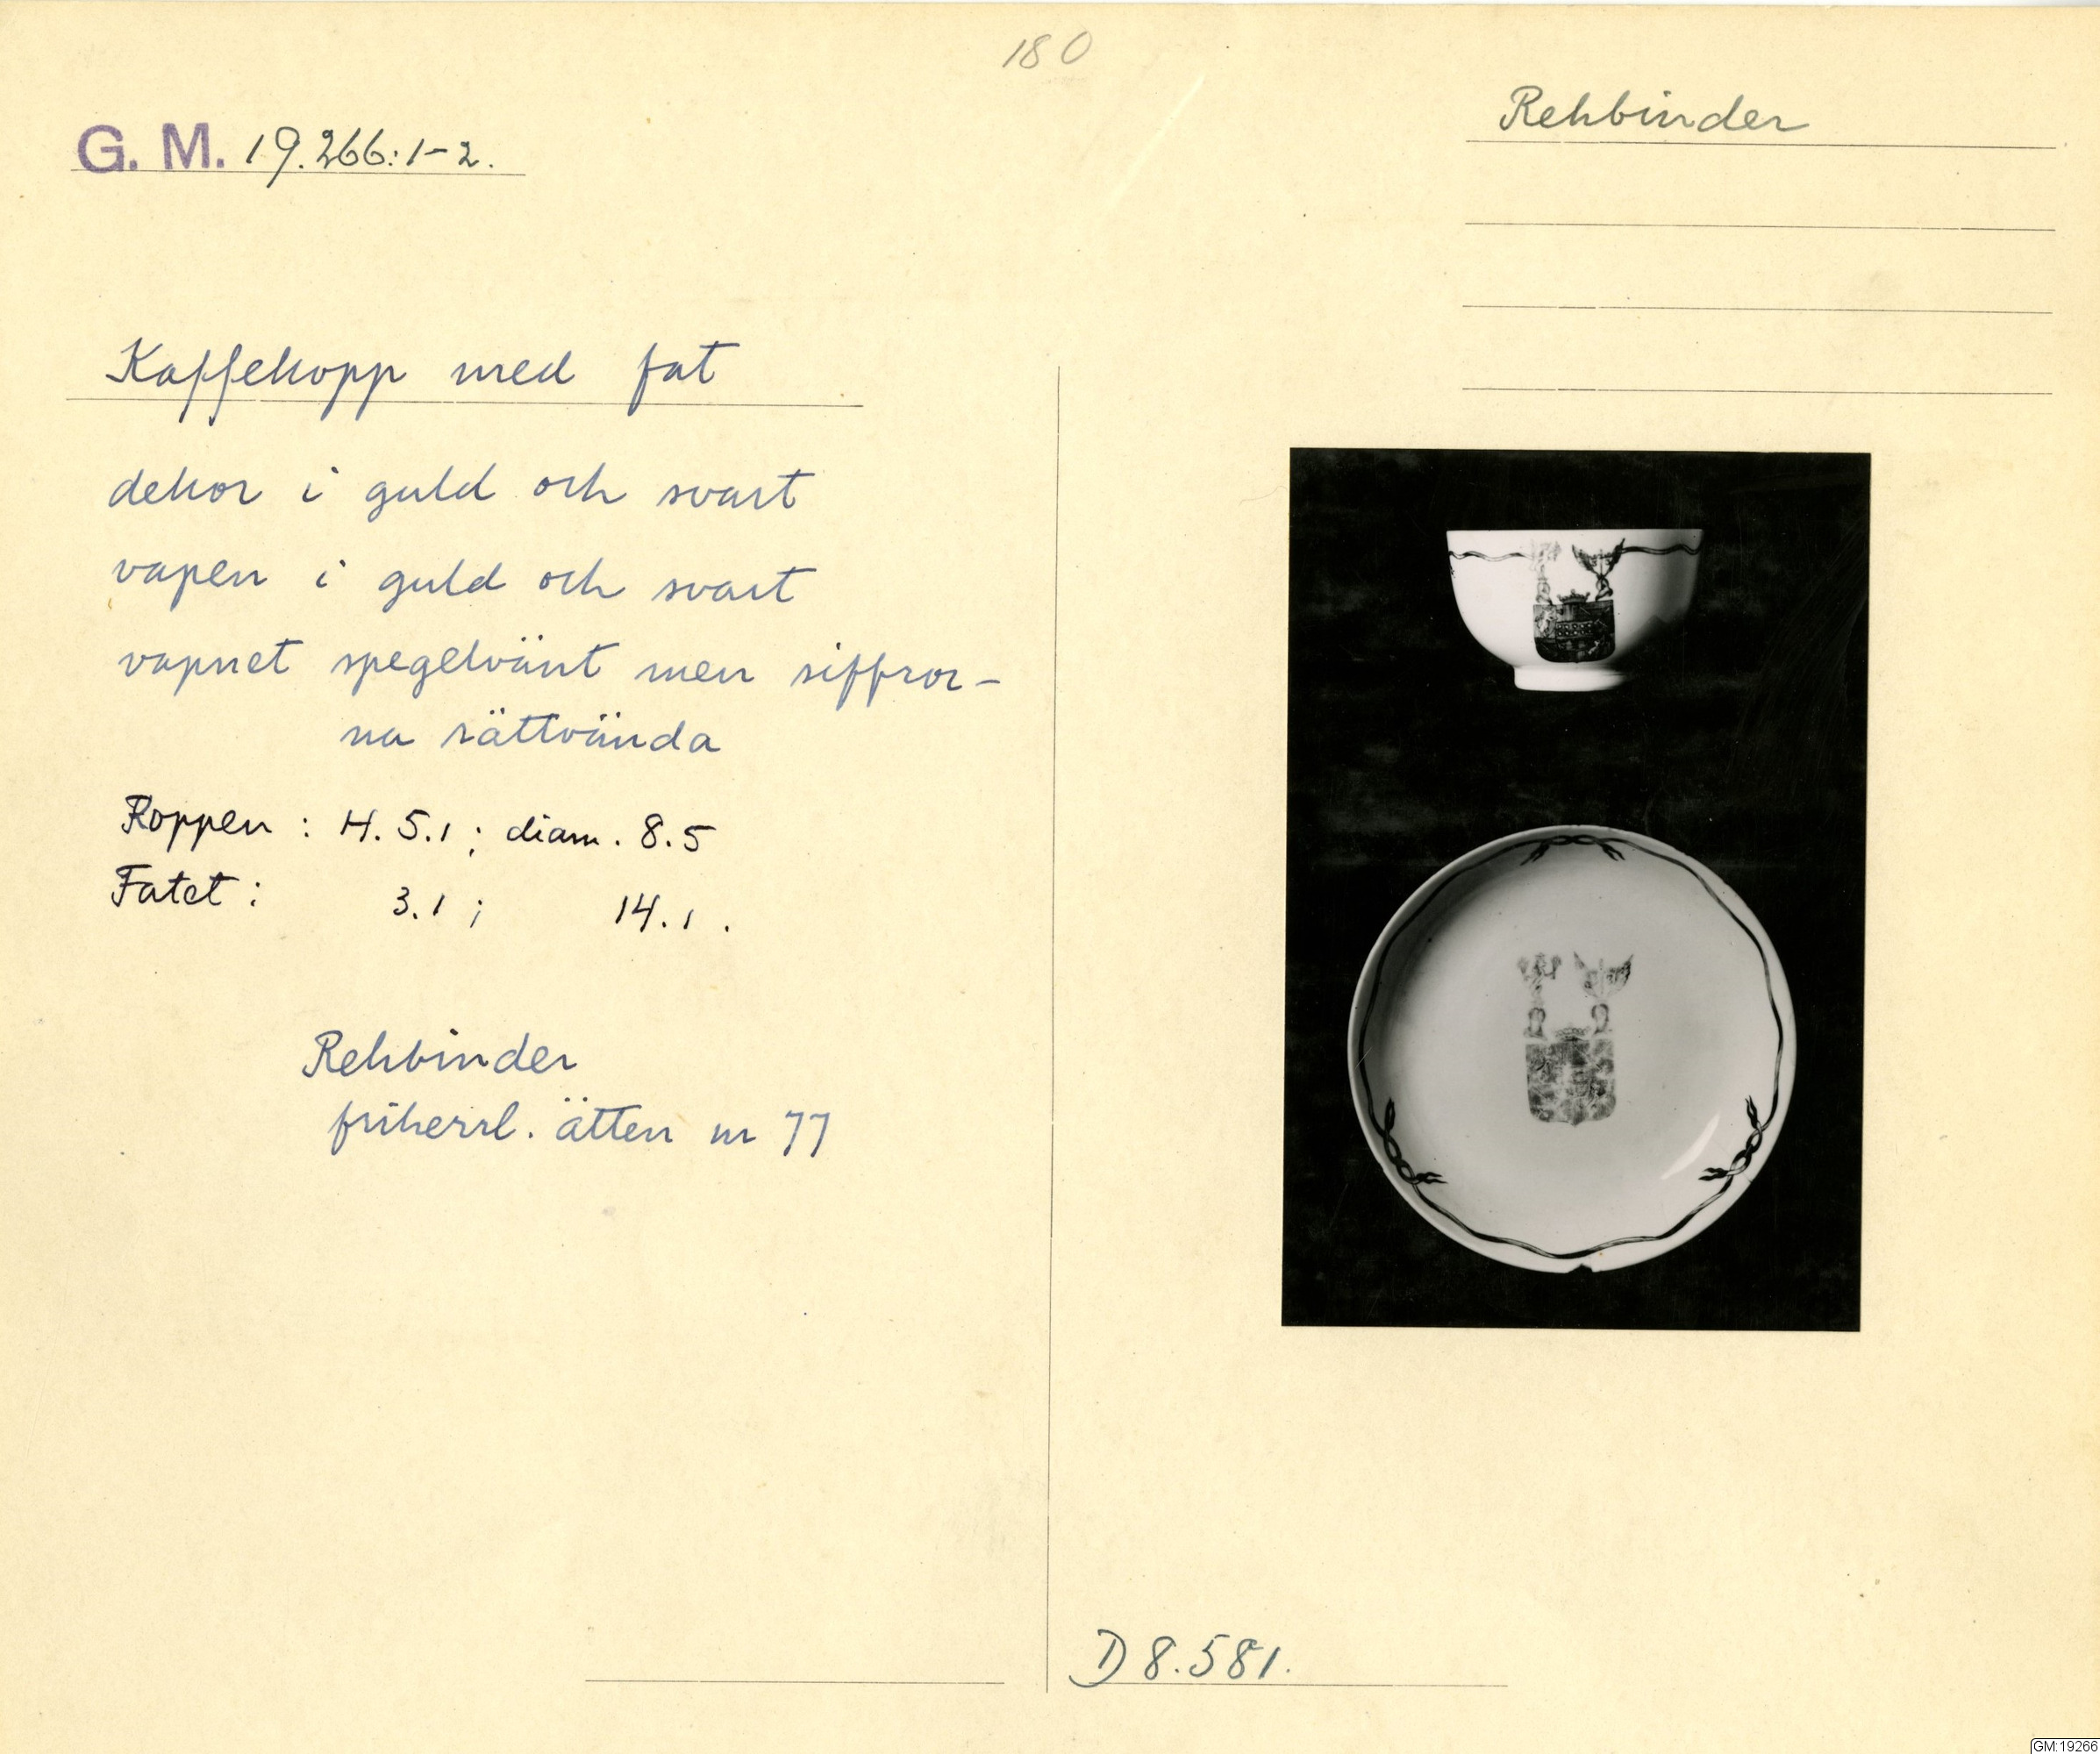 180
Rehbinder
G. M. 19.266:1-2.
Kaffekopp med fat
dekor i guld och svart
vapen i guld och svart
vapnet spegelvänt men siffror-
na rättvända
Koppen : H. 5.1 ; diam. 8.5
Fatet : 3.1 ; 14.1 .
Rehbinder
friherrl. ätten nr 77
D 8.581.
GM:19266